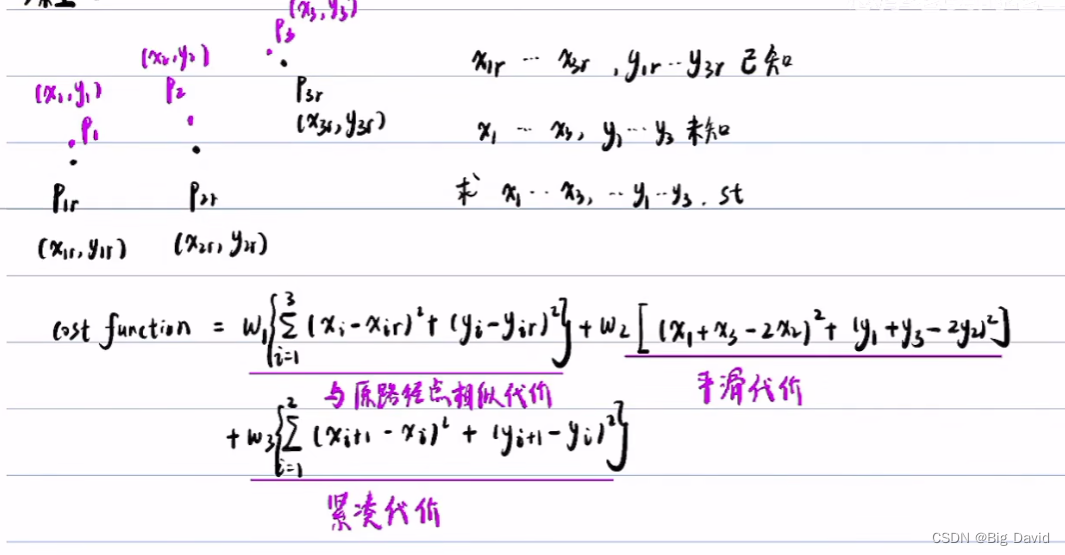 (x3, y3)
P3
(x2, y2)
P2
(x1, y1)
P1
P3r
(x3r, y3r)
P1r
P2r
(x1r, y1r)
(x2r, y2r)
x1r ... x3r , y1r ... y3r 已知
x1 ... x3, y1 ... y3 未知
求 x1 ... x3, ... y1 ... y3 . st
cost function = w1{∑_{i=1}^{3} (xi - xir)² + (yi - yir)²} + w2 [(x1 + x3 - 2x2)² + (y1 + y3 - 2y2)²]
与原路径点相似代价
平滑代价
+ w3{∑_{i=1}^{2} (xi+1 - xi)² + (yi+1 - yi)²}
紧凑代价
CSDN @Big David